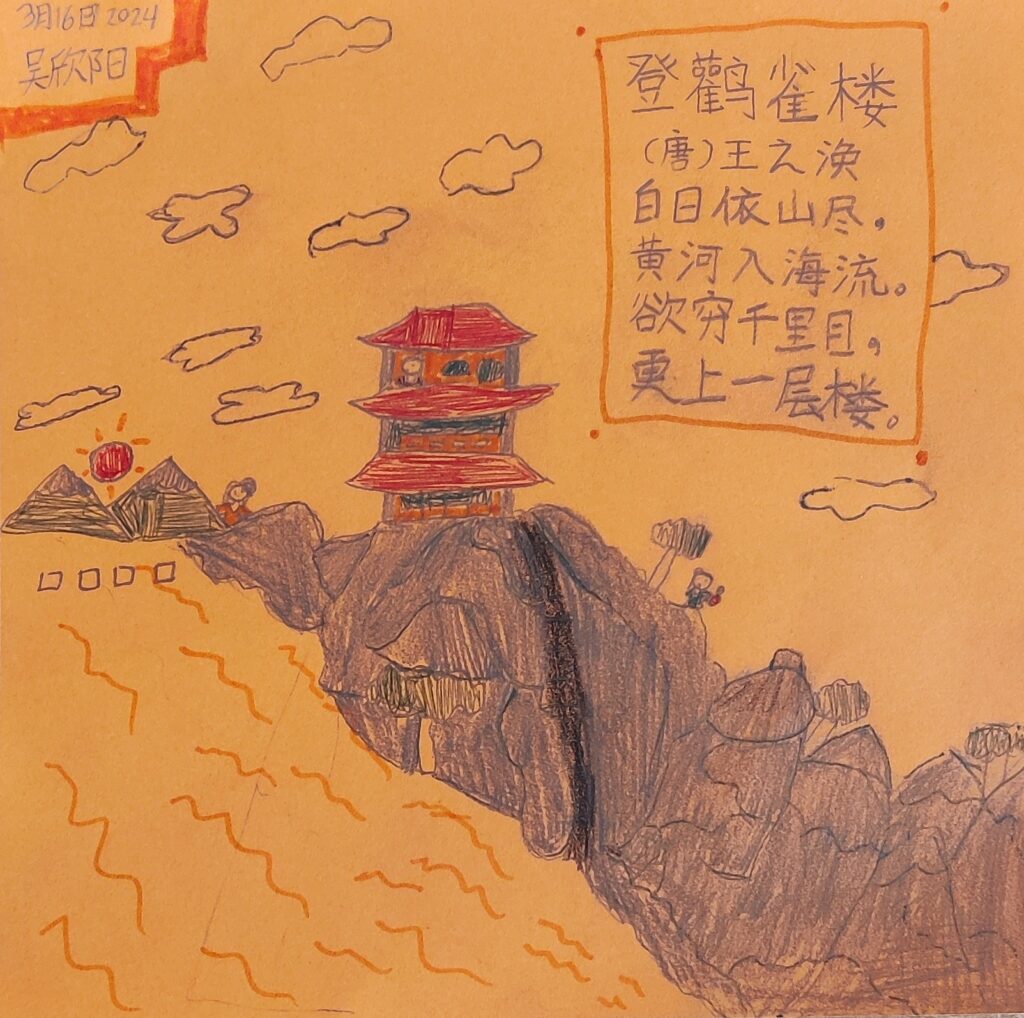 3月16日 2024
吴欣阳
登鹳雀楼
（唐）王之涣
白日依山尽，
黄河入海流。
欲穷千里目，
更上一层楼。